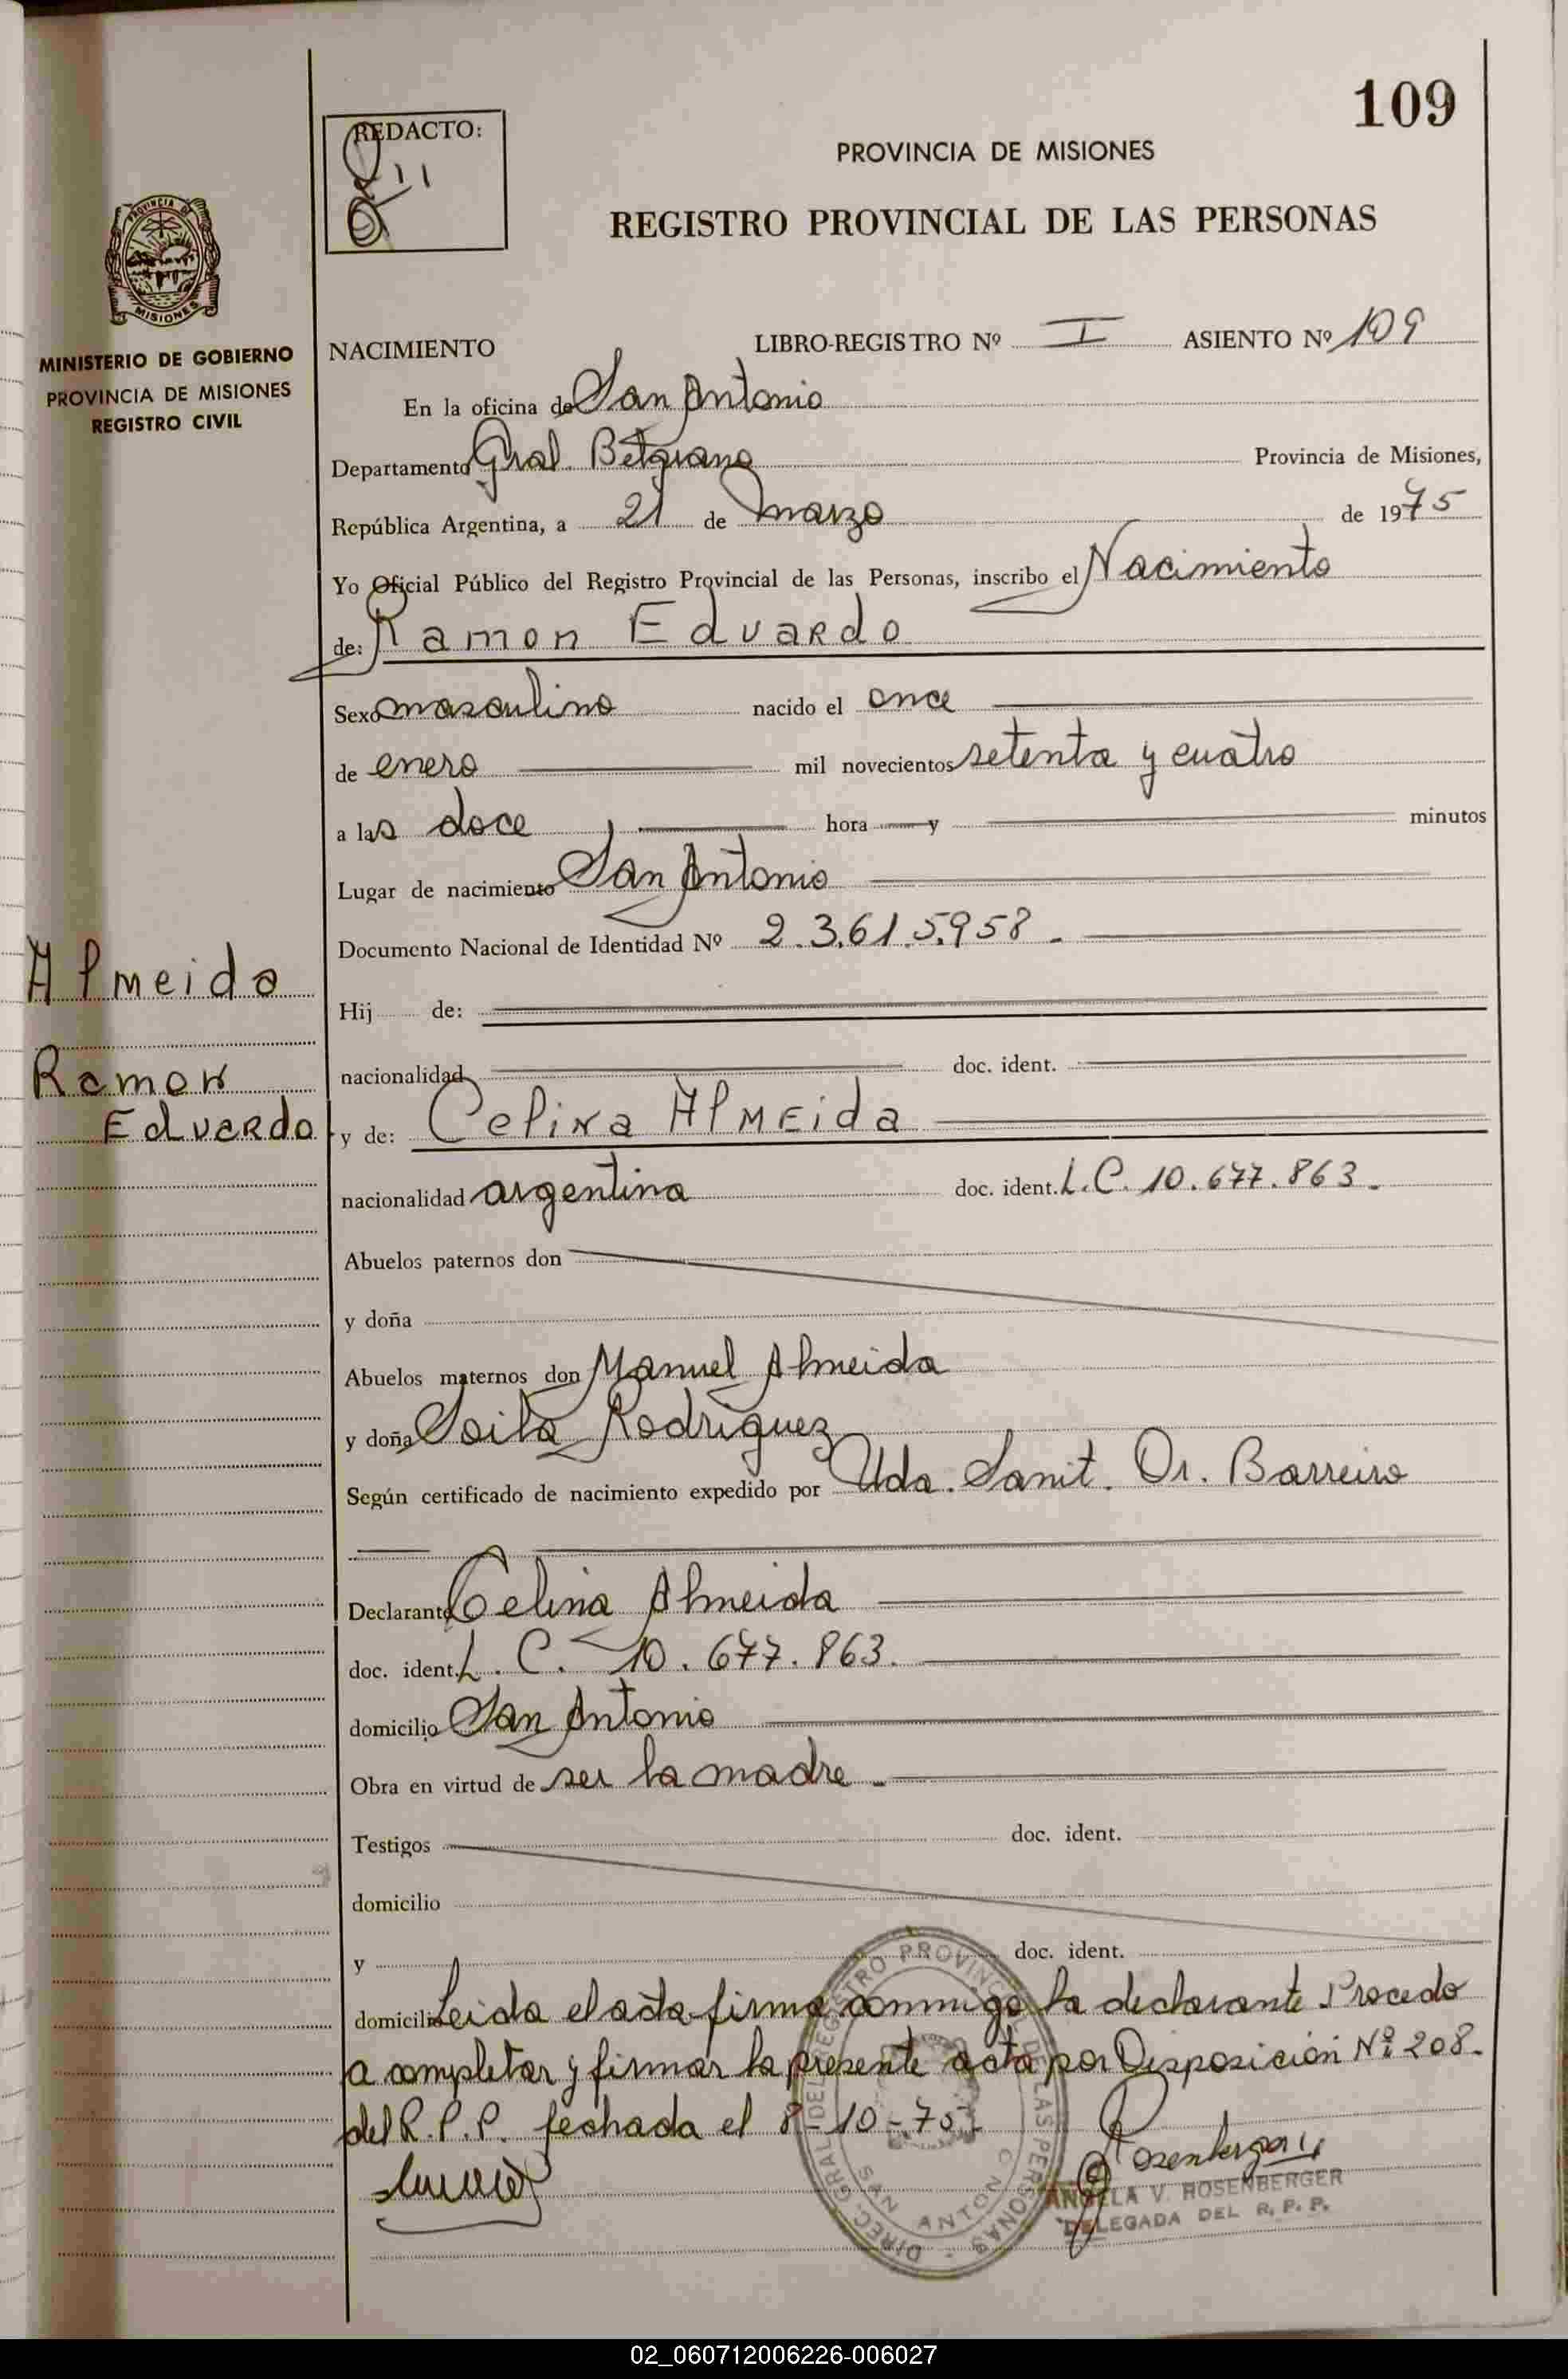 109
REDACTO:
PROVINCIA DE MISIONES
REGISTRO PROVINCIAL DE LAS PERSONAS
PROVINCIA DE
MISIONES
MINISTERIO DE GOBIERNO
PROVINCIA DE MISIONES
REGISTRO CIVIL
NACIMIENTO LIBRO-REGISTRO Nº I ASIENTO Nº 109
En la oficina de San Antonio
Departamento Gral. Belgrano Provincia de Misiones,
República Argentina, a 21 de marzo de 1975
Yo Oficial Público del Registro Provincial de las Personas, inscribo el Nacimiento
de: Ramon Eduardo
Sexo masculino nacido el once
de enero mil novecientos setenta y cuatro
a las doce hora y minutos
Lugar de nacimiento San Antonio
Documento Nacional de Identidad Nº 2.3.61.5.958.
Almeida
Ramon
Eduardo
Hij de:
nacionalidad doc. ident.
y de: Celina Almeida
nacionalidad argentina doc. ident. L.C. 10.677.863.
Abuelos paternos don
y doña
Abuelos maternos don Manuel Almeida
y doña Soila Rodriguez
Según certificado de nacimiento expedido por Uda. Sanit. Dr. Barreiro
Declarante Celina Almeida
doc. ident. L.C. 10.677.863.
domicilio San Antonio
Obra en virtud de ser la madre.
Testigos doc. ident.
domicilio
y doc. ident.
domicilio Leida el acta firma conmigo la declarante Procedo
a completar y firmar la presente acta por Disposición Nº 208.
del R.P.P. fechada el 8-10-75
DIREC. GRAL DEL REGISTRO PROVINCIAL DE LAS PERSONAS
SAN ANTONIO
Rosenberger
ANGELA V. ROSENBERGER
DELEGADA DEL R. P. P.
02_060712006226-006027